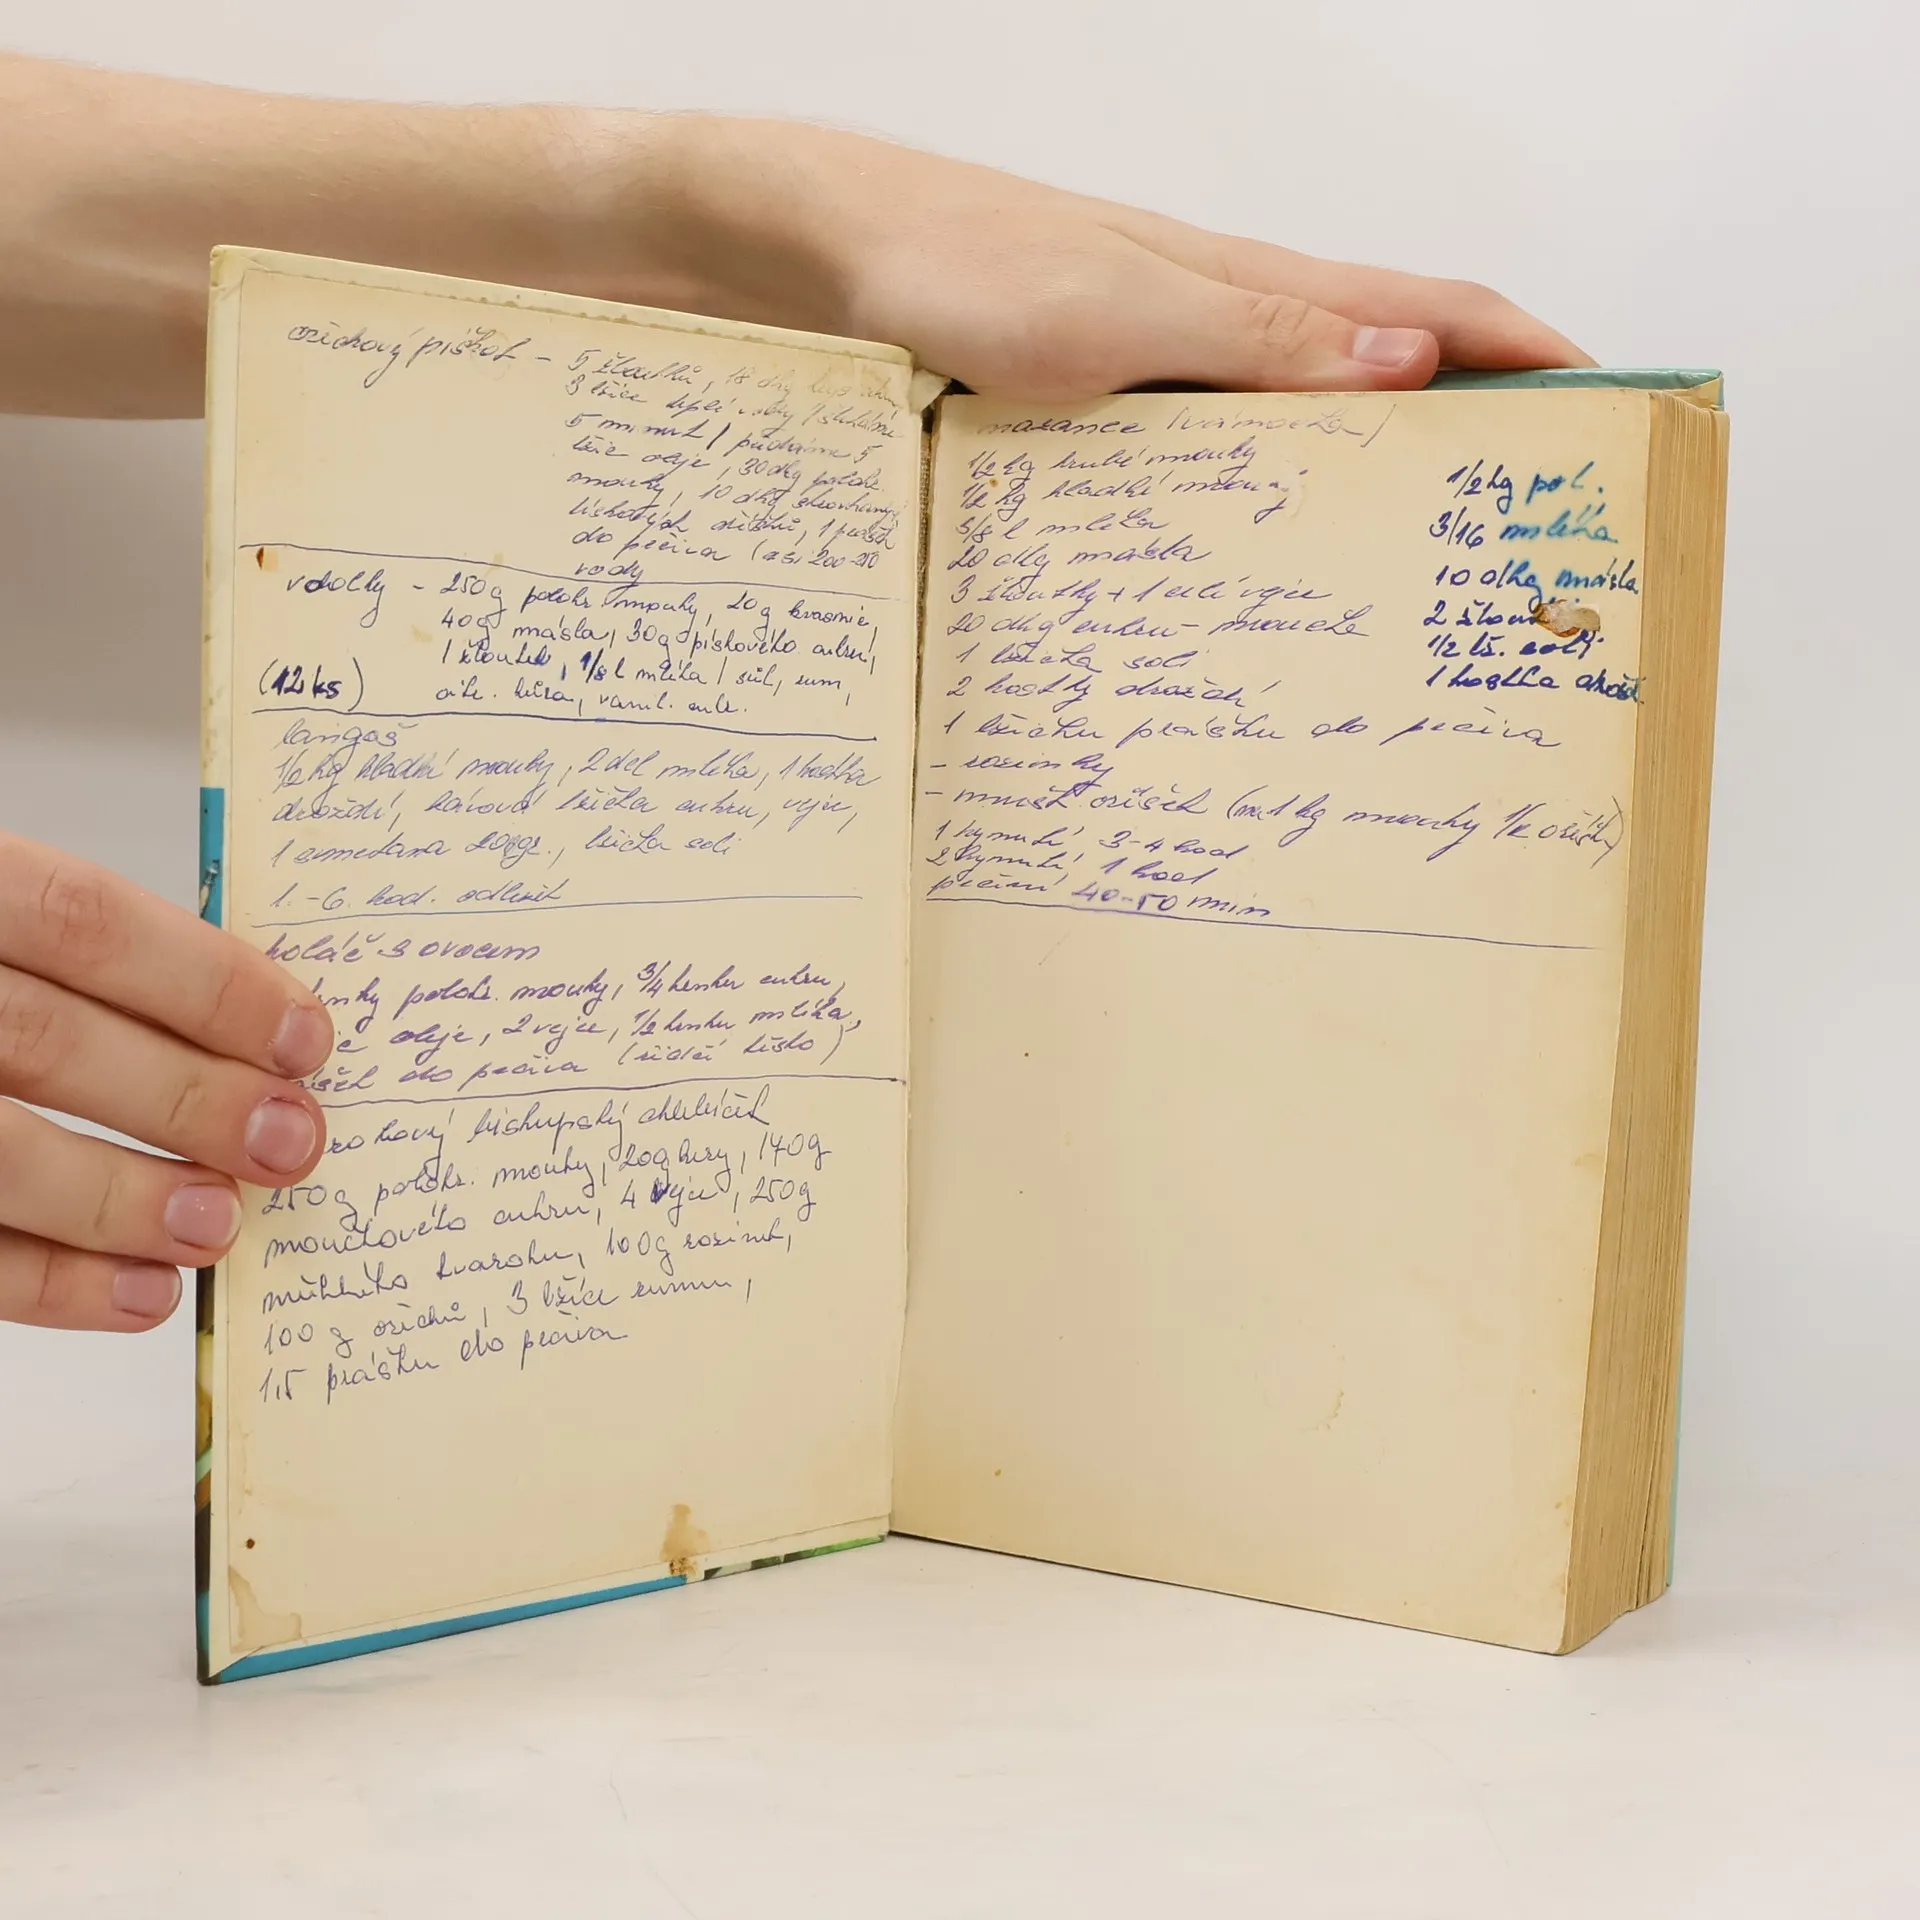 ořichový piškot - 5 žloutků, 18 dkg
3 lžíce teplé vody / šleháme
5 minut / přidáme 5
lžic oleje, 30 dkg polohr.
mouky, 10 dkg strouhaných
lískových oříšků, 1 prášek
do pečiva (asi 200-250
vody
vdolky - 250g polohr. mouky, 20g kvasnic,
40g másla, 30g pískového cukru,
1 žloutek, 1/8 l mléka / sůl, rum,
(12 ks) citr. kůra, vanil. cukr.
langoš
1/2 kg hladké mouky, 2 del mléka, 1 kostka
droždí, kávová lžička cukru, vejce,
1 smetana 200gr., lžička soli
1.-6. hod. odležet
koláč s ovocem
hrnky polohr. mouky, 3/4 hrnku cukru,
oleje, 2 vejce, 1/2 hrnku mléka,
do pečiva (řidčí těsto)
rohový biskupský chlebíček
250g polohr. mouky, 20g hery, 140g
moučkového cukru, 4 vejce, 250g
měkkého tvarohu, 100g rozinek,
100 g ořechů, 3 lžíce rumu,
1,5 prášku do pečiva
mazance (vánočka)
1/2 kg hrubé mouky
1/2 kg hladké mouky
5/8 l mléka
20 dkg másla
3 žloutky + 1 celé vejce
20 dkg cukru - moučka
1 lžička soli
2 kostky droždí
1 lžičku prášku do pečiva
- rozinky
- mušk. oříšek (na 1 kg mouky 1/2 oříšku)
1 kynutí 3-4 hod
2 kynutí 1 hod
pečení 40-50 min
1/2 kg pol.
3/16 mléka
10 dkg másla
2 žlout
1/2 lž. soli
1 kostka drožd